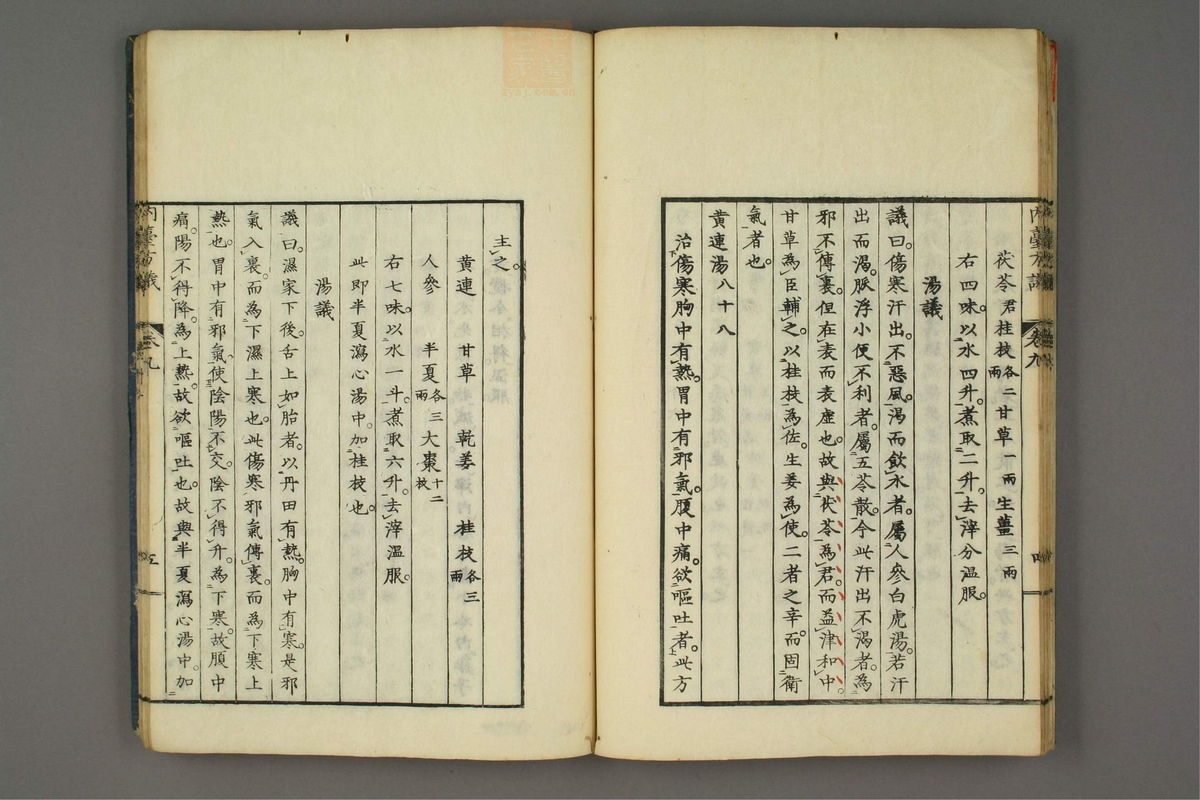 茯苓君桂枝各二兩甘草一兩生薑三兩
右四味以水四升煮取二升去滓分温服
湯議
議曰傷寒汗出不惡風渴而飲水者屬人參白虎湯若汗
出而渴脈浮小便不利者屬五苓散今此汗出不渴者為
邪不傳裏但在表而表虛也故與茯苓為君而益津和中
甘草為臣輔之以桂枝為佐生姜為使二者之辛而固衛
氣者也
黄連湯八十八
治傷寒胸中有熱胃中有邪氣腹中痛欲嘔吐者此方
主之
黄連 甘草 乾姜 桂枝各三兩
人參 半夏各三兩 大棗十二枚
右七味以水一斗煮取六升去滓溫服
此即半夏瀉心湯中加桂枝也
湯議
議曰濕家下後舌上如胎者以丹田有熱胸中有寒是邪
氣入裏而為下濕上寒也此傷寒邪氣傳裏而為下寒上
熱也胃中有邪氣使陰陽不交陰不得升為下寒故腹中
痛陽不得降為上熱故欲嘔吐也故與半夏瀉心湯中加
卷九